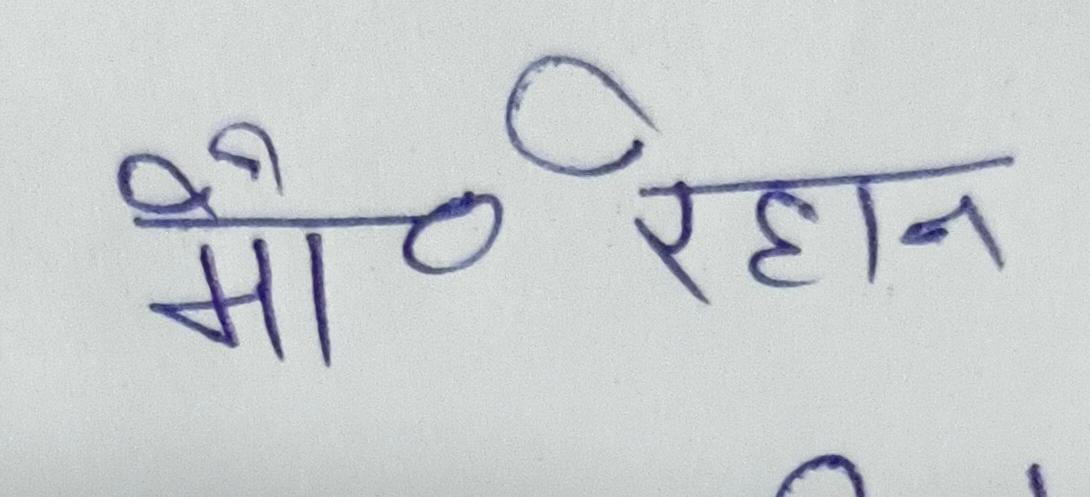 मो० रेहान